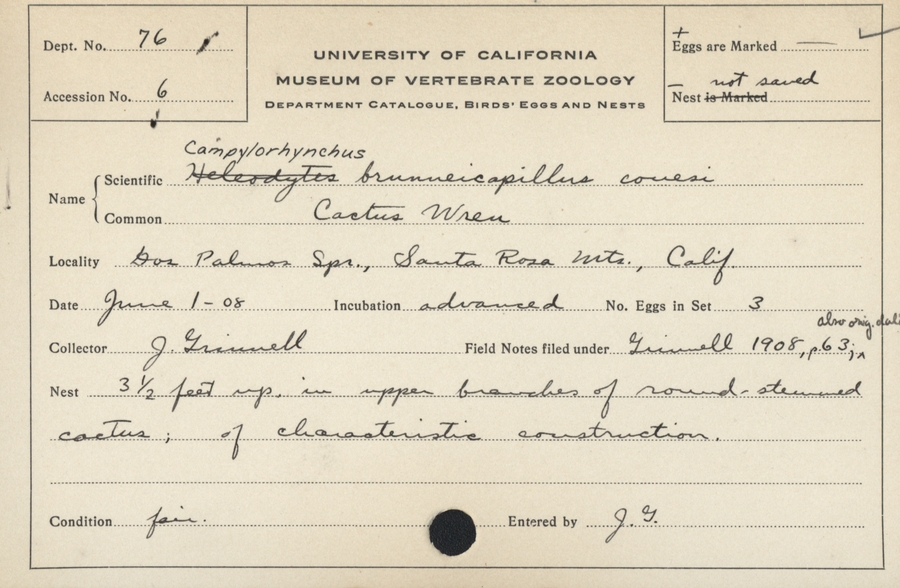 Dept. No. 76
Accession No. 6
UNIVERSITY OF CALIFORNIA
MUSEUM OF VERTEBRATE ZOOLOGY
DEPARTMENT CATALOGUE, BIRDS' EGGS AND NESTS
+
Eggs are Marked —
— not saved
Nest is Marked
Campylorhynchus
Name Scientific Heleodytes brunneicapillus couesi
Common Cactus Wren
Locality Dos Palmos Spr., Santa Rosa Mts., Calif.
Date June 1-08 Incubation advanced No. Eggs in Set 3
also orig.
Collector J. Grinnell Field Notes filed under Grinnell 1908, p.63;
Nest 3½ feet up, in upper branches of round-stemmed
cactus; of characteristic construction.
Condition fair. Entered by J. G.